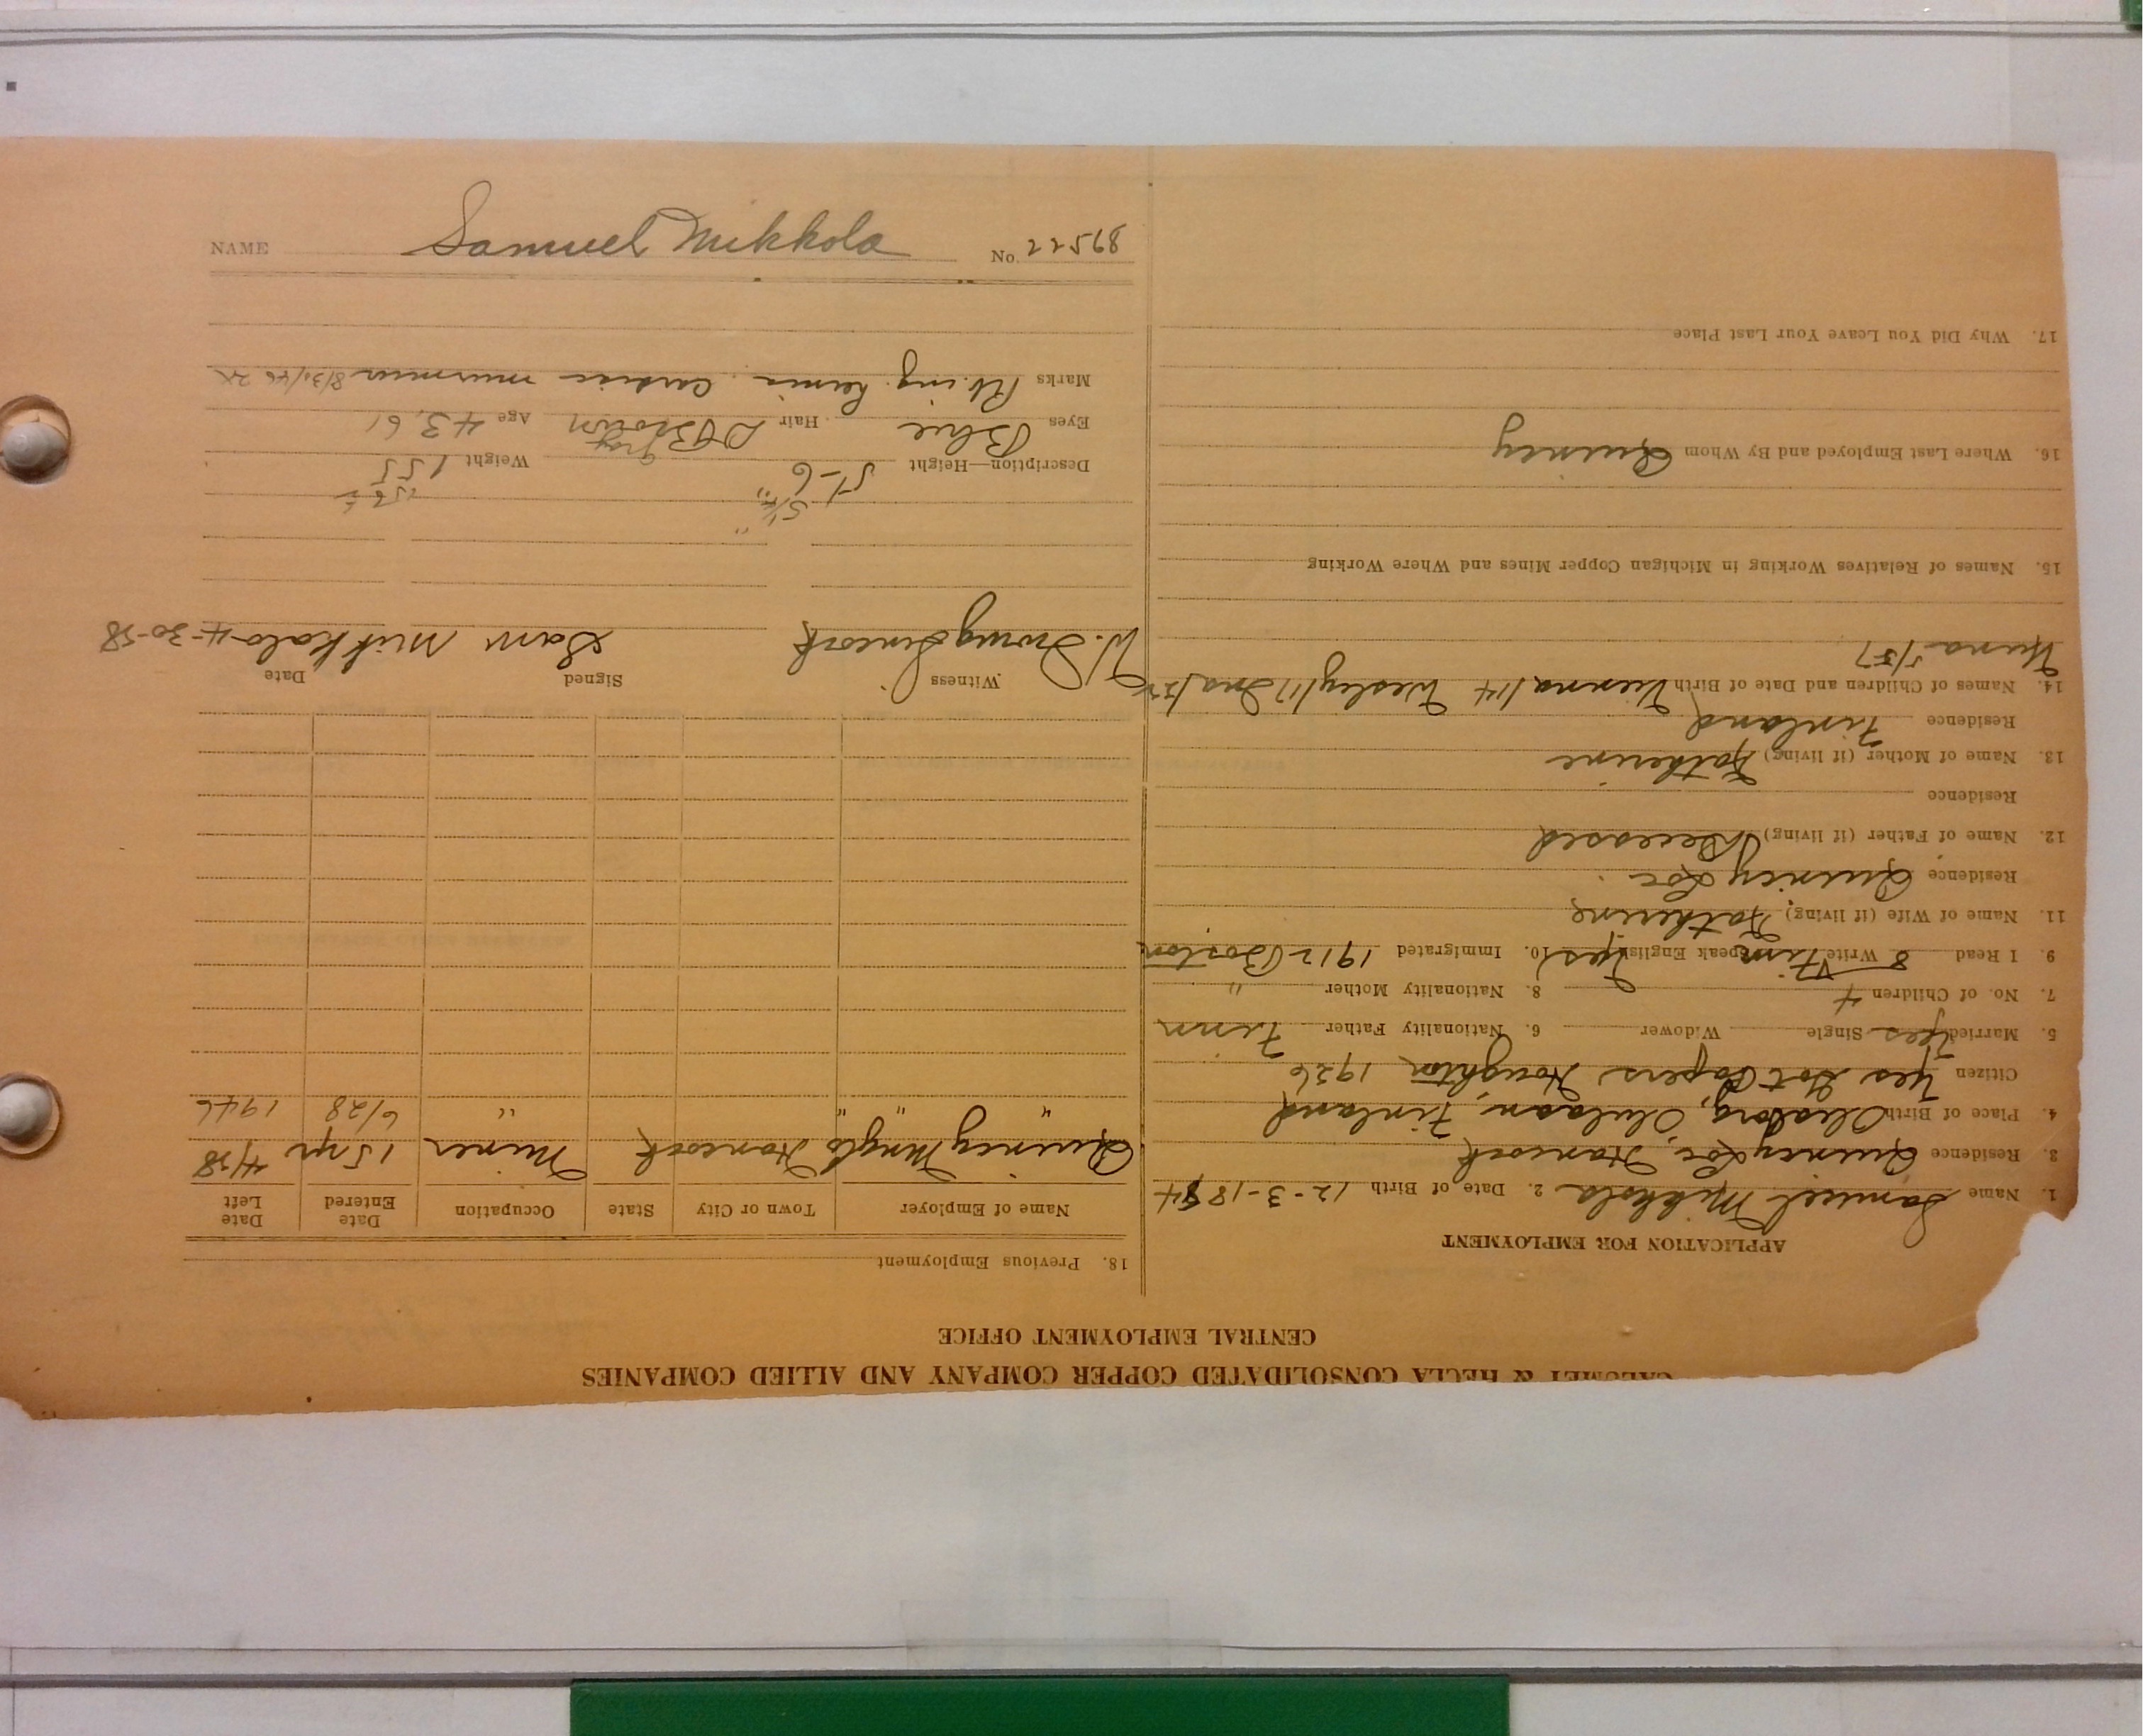 CALUMET & HECLA CONSOLIDATED COPPER COMPANY AND ALLIED COMPANIES
CENTRAL EMPLOYMENT OFFICE
APPLICATION FOR EMPLOYMENT
1. Name Samuel Mikkola 2. Date of Birth 12-3-1884
3. Residence Quincy Loc, Hancock
4. Place of Birth Finland
Citizen Yes Got Papers Houghton 1926
5. Married Yes Single Widower 6. Nationality Father Finn
7. No. of Children 4 8. Nationality Mother "
9. I Read & Write Finn Speak English Yes 10. Immigrated 1912 Boston
11. Name of Wife (if living) Katherine
Residence Quincy Loc.
12. Name of Father (if living) Deceased
Residence
13. Name of Mother (if living) Katherine
Residence Finland
14. Names of Children and Date of Birth /14 Wesley/17 Ina/22
15. Names of Relatives Working in Michigan Copper Mines and Where Working
16. Where Last Employed and By Whom Quincy
17. Why Did You Leave Your Last Place
18. Previous Employment
Name of Employer Town or City State Occupation Date Entered Date Left
Quincy Hancock Miner 15 yr
" " " " 6/28 1946
Witness Signed Date
Sam Mikkola
Description—Height 5-6 Weight 155
Eyes Blue Hair Brown Gray Age 43, 61
Marks Rt. ing. hernia. cardiac murmur 8/30/46
NAME Samuel Mikkola No. 89522